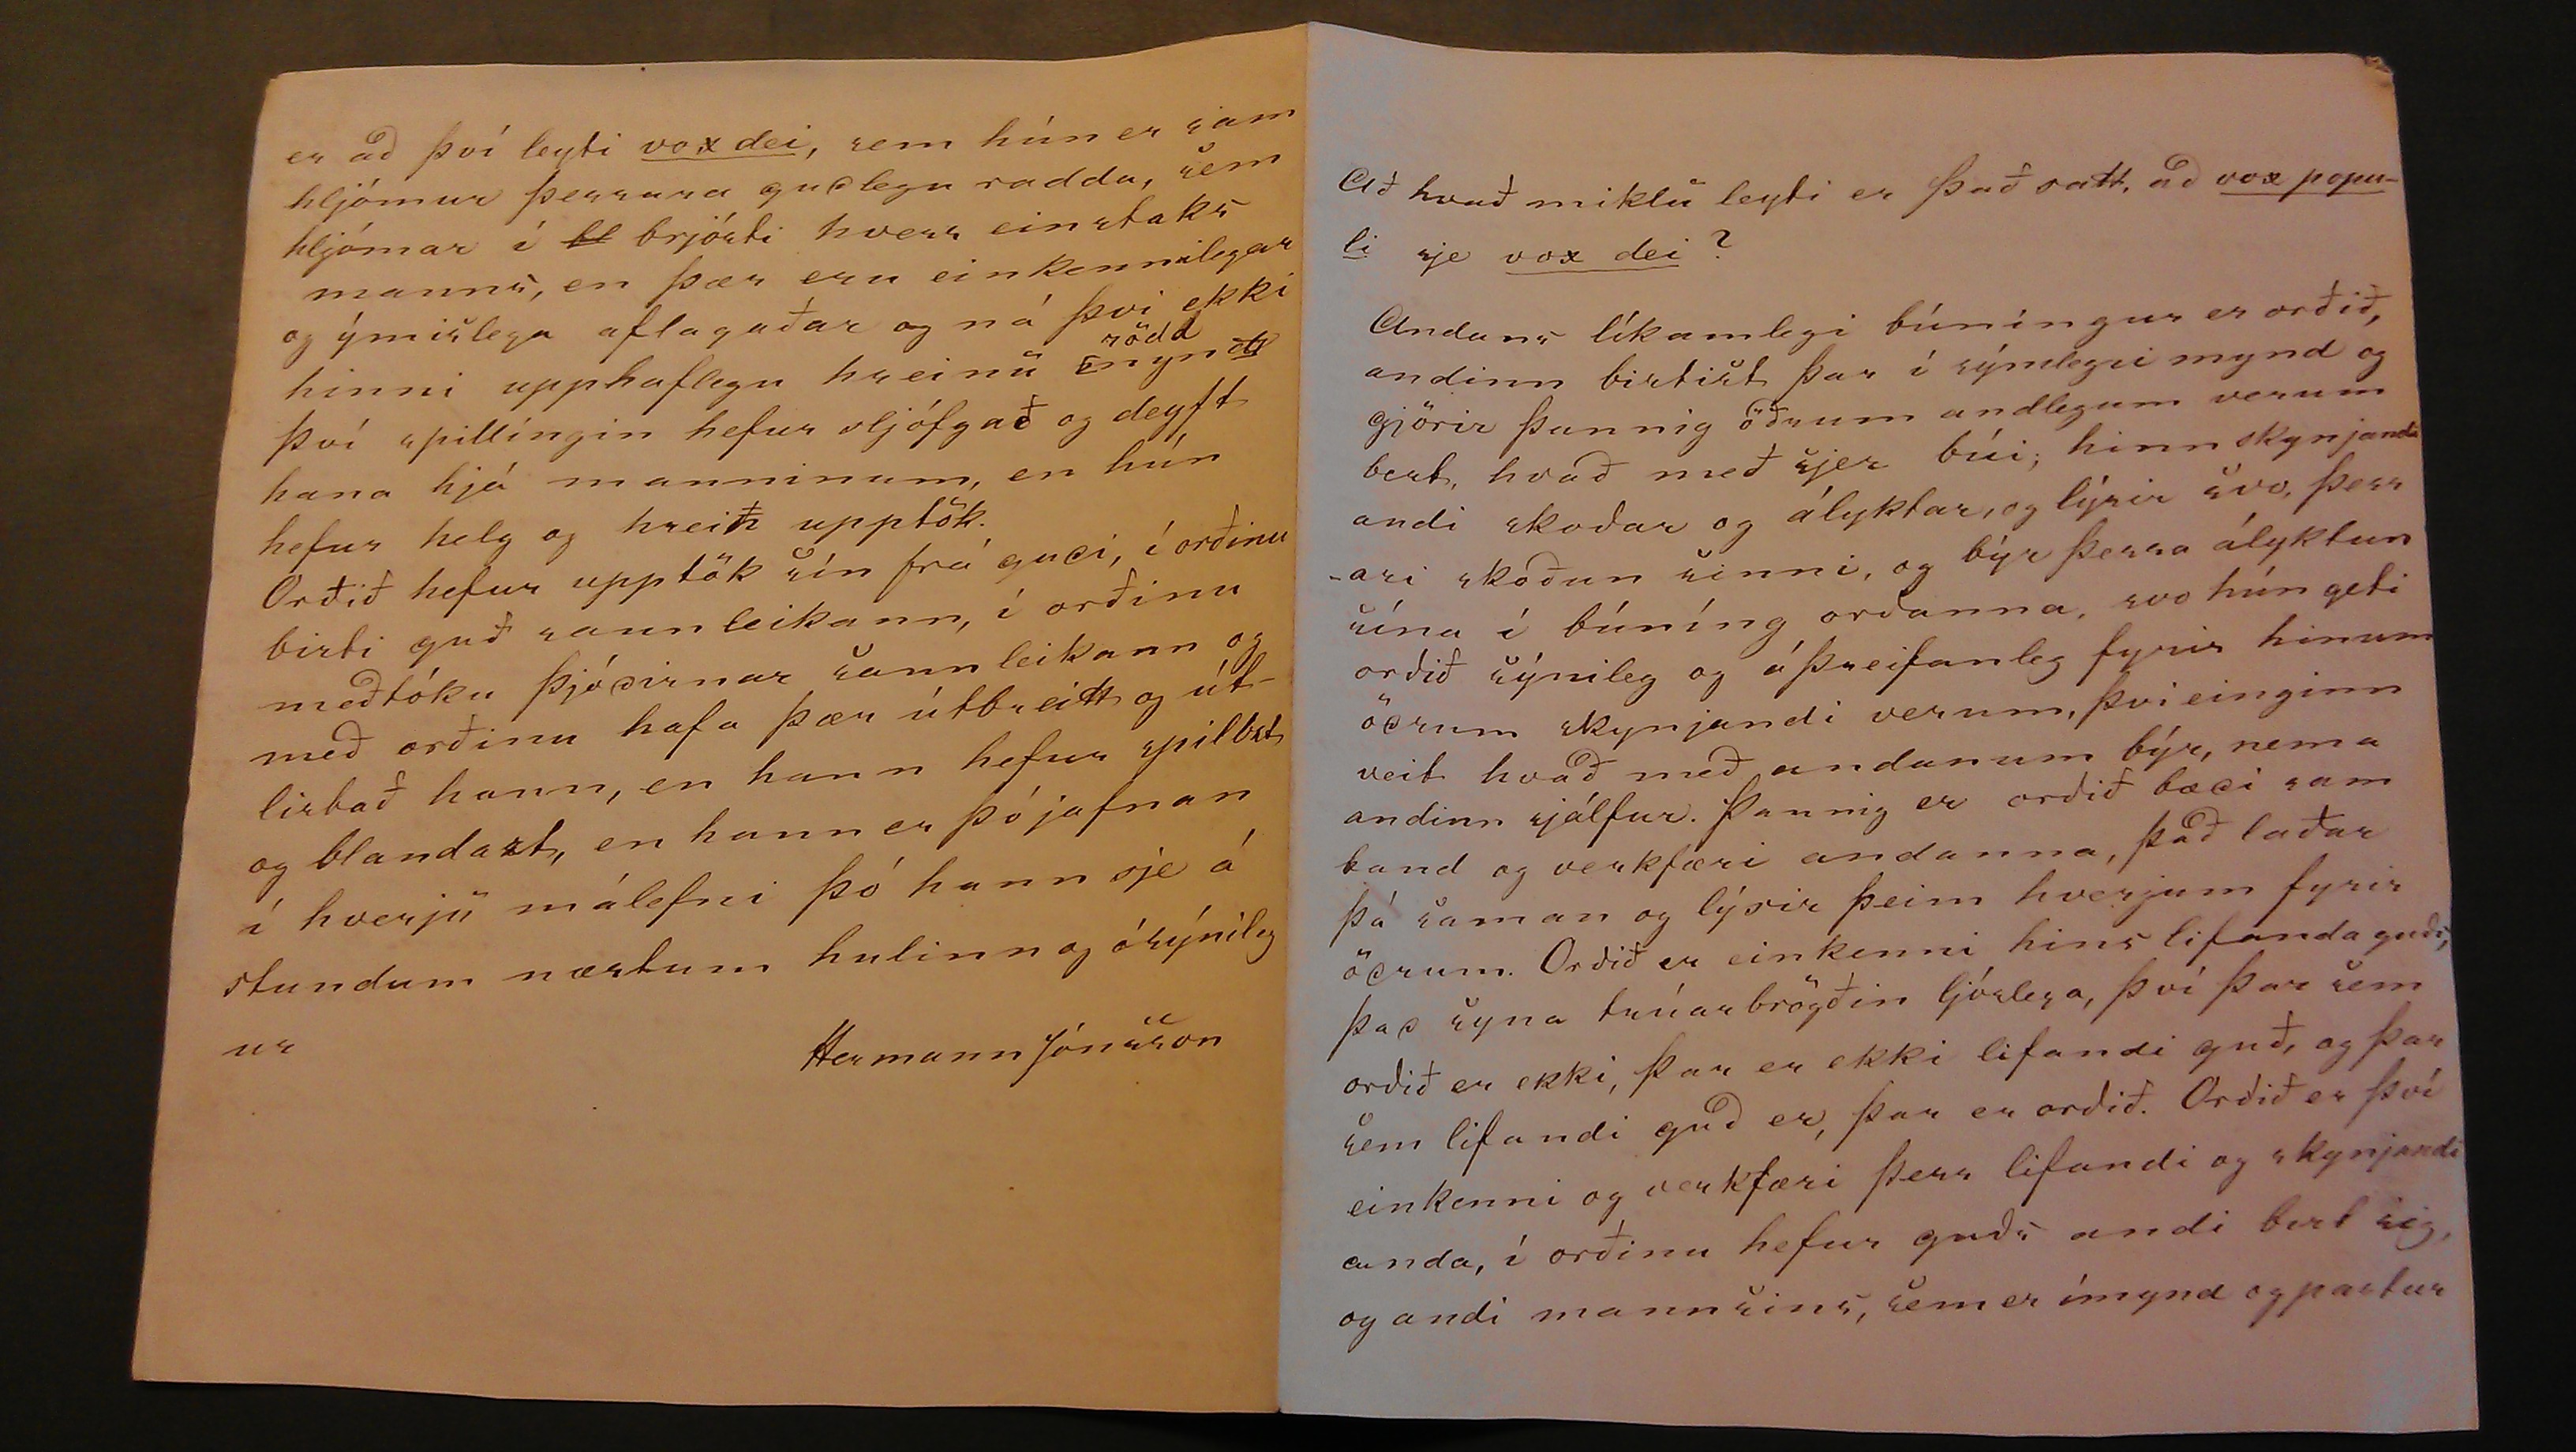 er að því leyti vox dei, sem hún er sam
hljómur þessara guðlegu radda, sem
hljómar í brjósti hvers einstaks
manns, en þær eru einkennilegar
og ýmislega aflagaðar og ná því ekki
rödd
hinni upphaflegu hreinu mynd
því spillíngin hefur sljófgað og deyft
hana hjá manninum, en hún
hefur helg og hrein upptök.
Orðið hefur upptök sín frá guði, í orðinu
birti guð sannleikann, í orðinu
meðtóku þjóðirnar sannleikann og
með orðinu hafa þær útbreitt og út-
listað hann, en hann hefur spillst
og blandazt, en hann er þó jafnan
í hverju málefni þó hann sje á
stundum næstum hulinn og ósýnileg
ur
Hermann Jónsson
Að hvað miklu leyti er það satt, að vox popu-
li sje vox dei?
Andans líkamlegi búníngur er orðið,
andinn birtist þar í sýnilegri mynd og
gjörir þannig öðrum andlegum verum
bert, hvað með sjer búi; hinn skynjandi
andi skoðar og ályktar, og lýsir svo, þess
-ari skoðun sinni, og býr þessa ályktun
sína í búníng orðanna, svo hún geti
orðið sýnileg og áþreifanleg fyrir hinum
öðrum skynjandi verum, því einginn
veit hvað með andanum býr, nema
andinn sjálfur. Þannig er orðið bæði sam
band og verkfæri andanna, það laðar
þá saman og lýsir þeim hverjum fyrir
öðrum. Orðið er einkenni hins lifanda guðs,
það syna trúarbrögðin ljóslega, því þar sem
orðið er ekki, þar er ekki lifandi guð, og þar
sem lifandi guð er, þar er orðið. Orðið er því
einkenni og verkfæri þess lifandi og skynjandi
anda, í orðinu hefur guðs andi bert sig,
og andi mannsins, sem er ímynd og partur